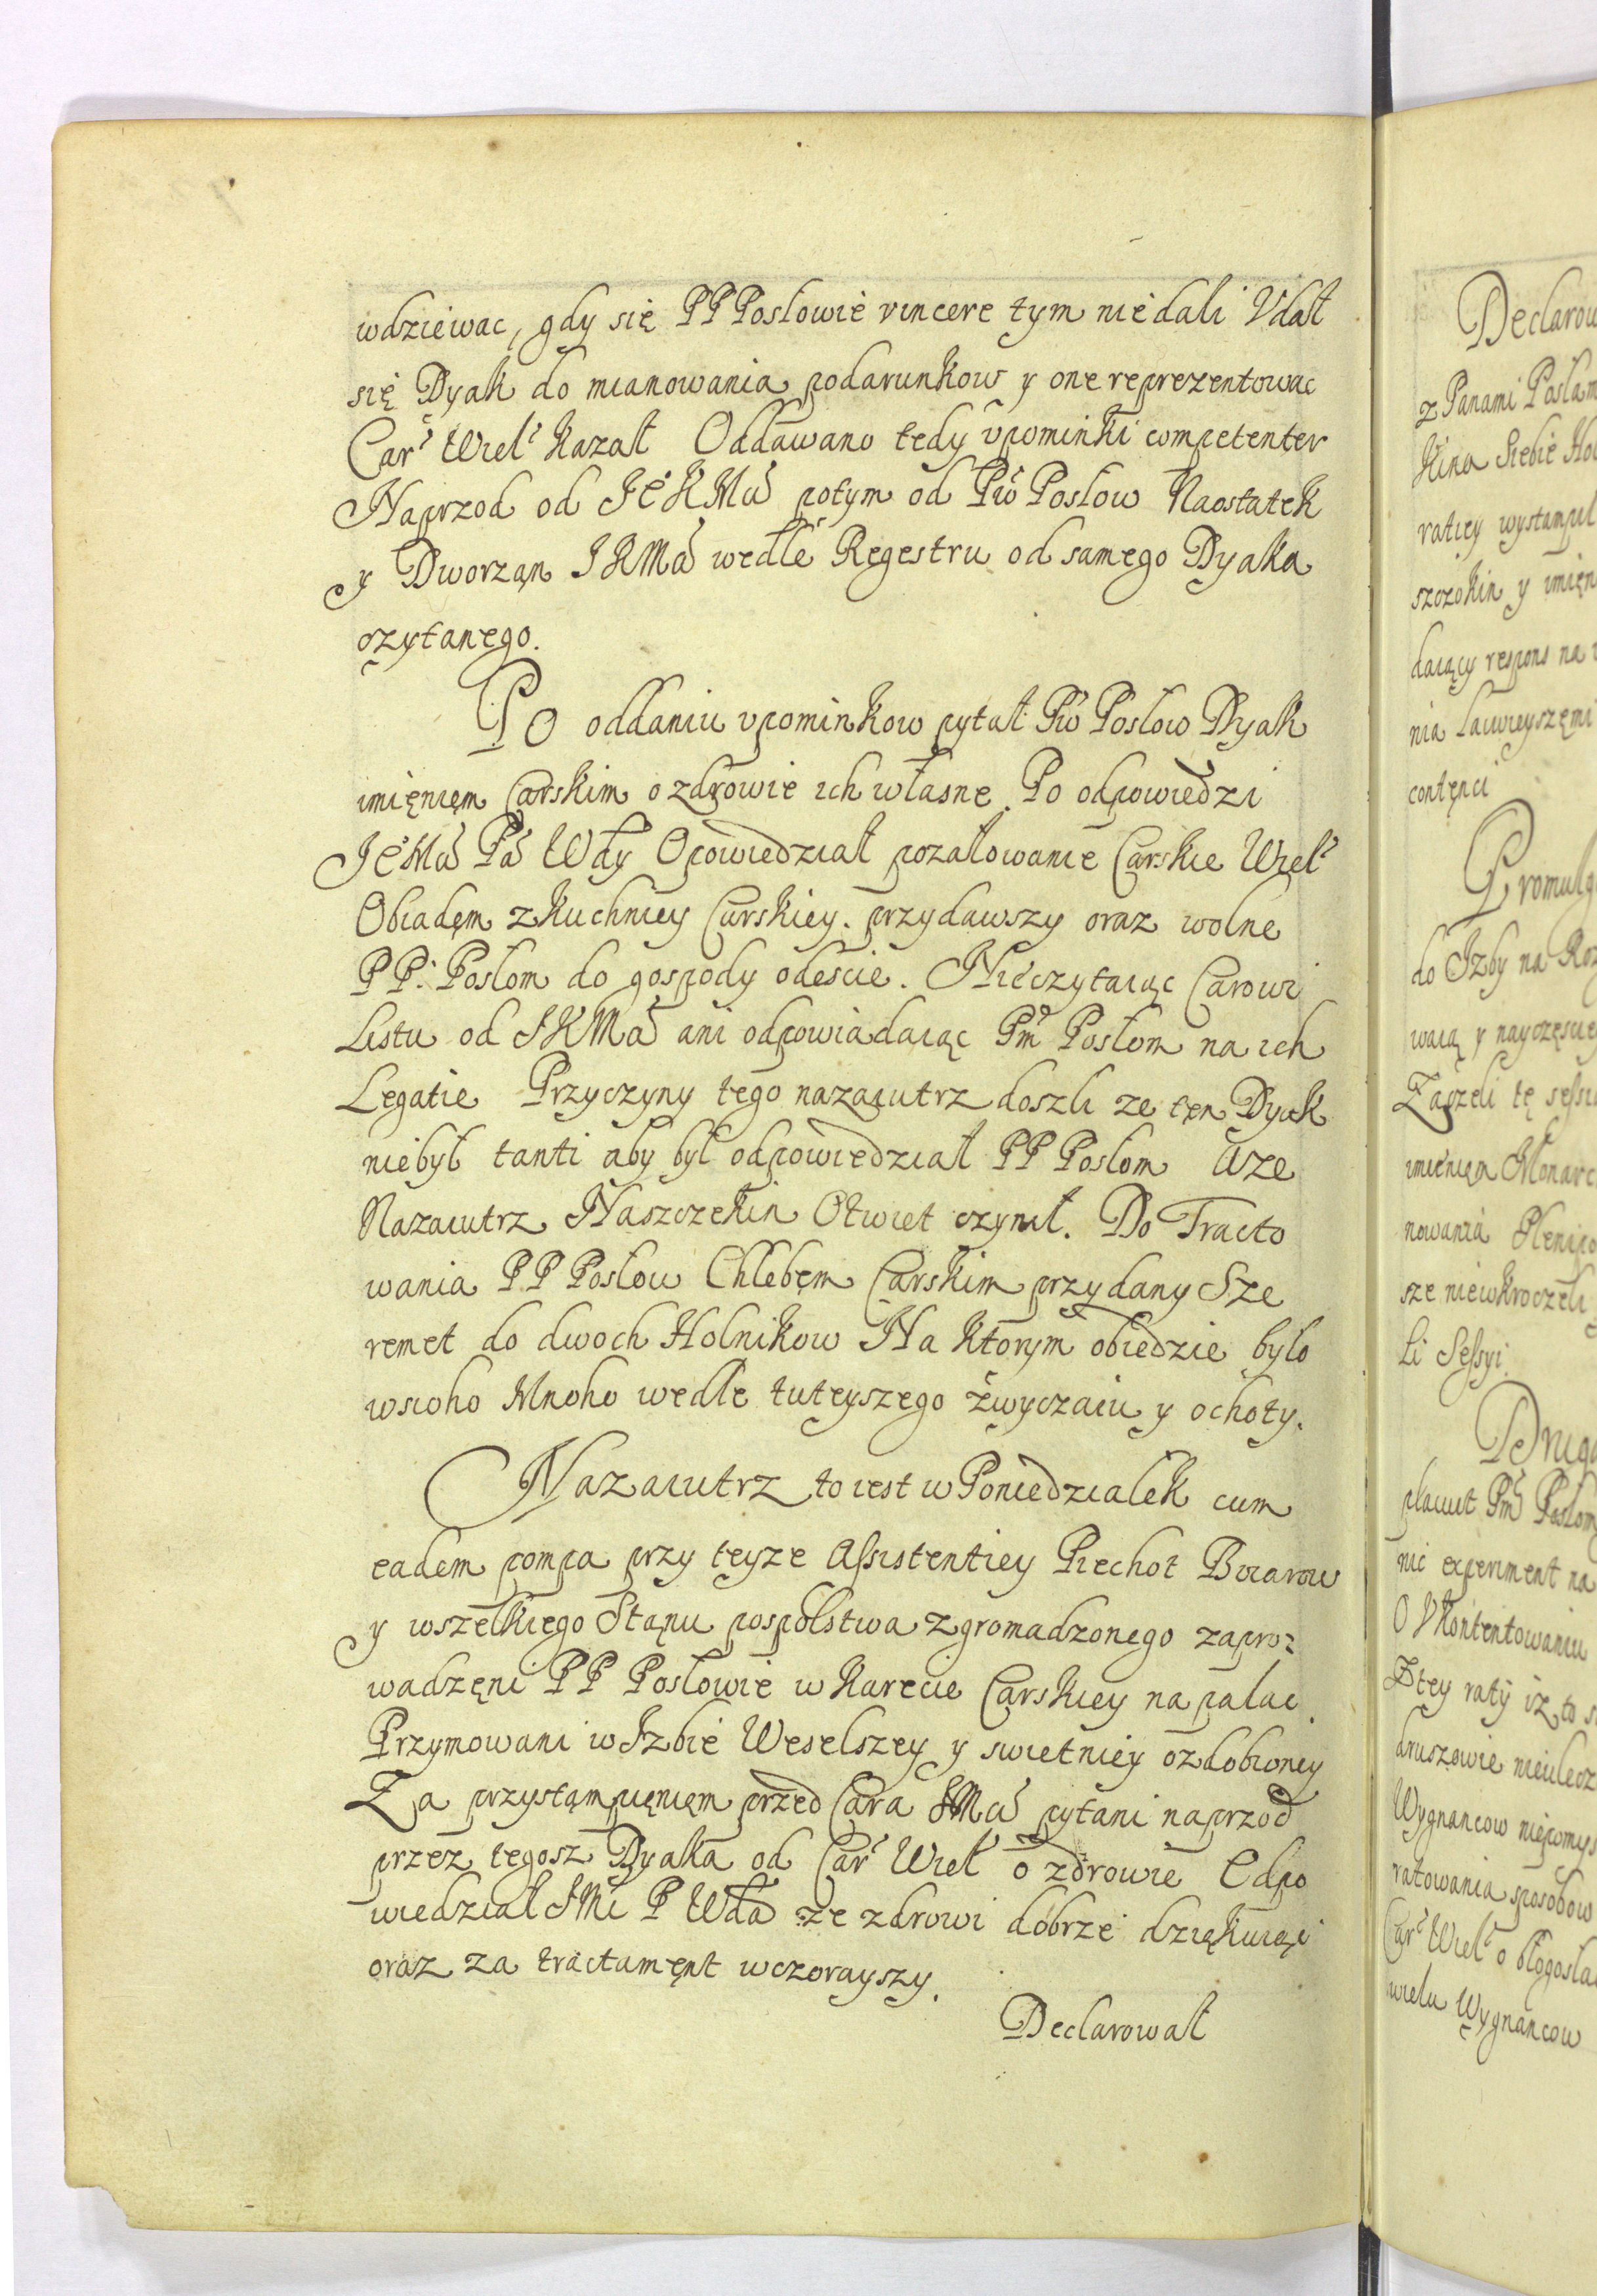 wdziewac, gdy się PP Posłowie vincere tym nie dali Vdał
się Dyak do mianowania podarunkow y one reprezentowac
Carˢ Wielˢ kazał Oddawano tedy vpominki competenter
Naprzod od JeKMci potym od Pw Posłow Naostatek
y Dworzan JKMci wedle Regestru od samego Dyaka
czytanego.
Po oddaniu vpominkow pytał Pw Posłow Dyak
imięnięm Carskim o zdrowie ich własne. Po odpowiedzi
JeMci Pa Wdy Opowiedział pozałowanie Carskie Wielˢ
Obiadęm z kuchniey Carskiey. przydawszy oraz wolne
PP. Posłom do gospody odeście. Nie czytaiąc Carowi
Listu od JKMci ani odpowiadaiąc Pm Posłom na ich
Legatie Przyczyny tego nazaiutrz doszli ze tęn Dyak
niebył tanti aby był odpowiedział PP Posłom Aze
Nazaiutrz Naszczekin Otwiet czynił. Do Tracto
wania PP Posłow Chlebęm Carskim przydany Sze
remet do dwoch Holnikow Na ktorym obiedzie było
wsioho Mnoho wedle tuteyszego zwyczaiu y ochoty.
Nazaiutrz to iest w Poniedziałek cum
eadem pompa przy teyze Assistentiey Piechot Boiarow
y wszelkiego Stąnu pospolstwa zgromadzonego zapro=
wadzęni PP Posłowie w karecie Carskiey na pałac.
Przymowani w Izbie Weselszey y swietniey ozdobioney
Za przystąmpięnięm przed Cara JMci pytani naprzod
przez tegosz Dyaka od Carˢ Wiel o zdrowie Odpo
wiedział JMc P Wda ze zdrowi dobrze dziękuiąc
oraz za tractamęnt wczorayszy.
Declarował
z Panami
Kina Siebie
ratiey wystampil
szczokin y
daiący respons na
contęnci
do Izby na
waią y
Zaczeli tę
imieniem
nowania
sze niewkroczeli
li Sessyi
Pm Posłom
nic experiment na
O Vkontentowaniu
Ztey raty iz to
Wygnancow
ratowania sposobow
Carˢ Wielˢ o
wielu Wygnancow